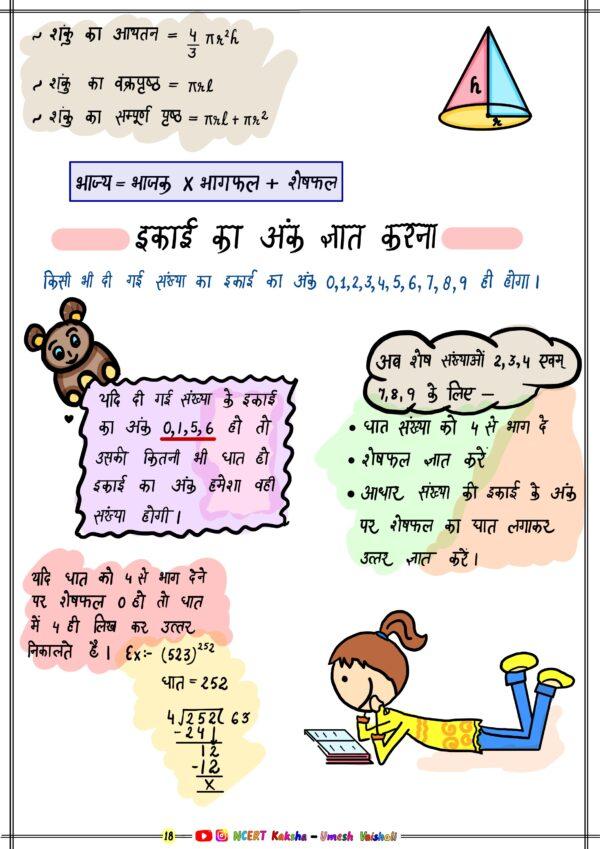 ~ शंकु का आयतन = 4/3 πr²h
~ शंकु का वक्रपृष्ठ = πrl
~ शंकु का सम्पूर्ण पृष्ठ = πrl + πr²
h
r
भाज्य = भाजक x भागफल + शेषफल
इकाई का अंक ज्ञात करना
किसी भी दी गई संख्या का इकाई का अंक 0,1,2,3,4,5,6,7,8,9 ही होगा।
यदि दी गई संख्या के इकाई
का अंक 0,1,5,6 हो तो
उसकी कितनी भी घात हो
इकाई का अंक हमेशा वही
संख्या होगी।
अब शेष संख्याओं 2,3,4 एवम्
7,8,9 के लिए –
• घात संख्या को 4 से भाग दे
• शेषफल ज्ञात करें
• आधार संख्या की इकाई के अंक
पर शेषफल का घात लगाकर
उत्तर ज्ञात करें।
यदि घात को 4 से भाग देने
पर शेषफल 0 हो तो घात
में 4 ही लिख कर उत्तर
निकालते है। Ex:- (523)²⁵²
घात = 252
4√252( 63
-24↓
12
-12
x
18 NCERT Kaksha – Umesh Vaishali